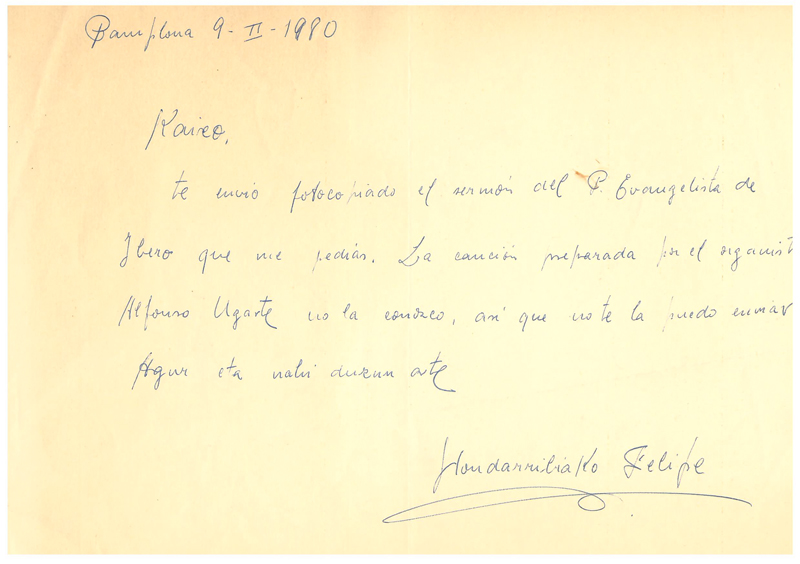 Pamplona 9-II-1980
Kaixo,
te envio fotocopiado el sermón del P. Evangelista de
Ibero que me pedías. La canción preparada por el organist
Alfonso Ugarte no la conozco, así que no te la puedo enviar
Agur eta nahi duzun arte
Hondarribiako Felipe